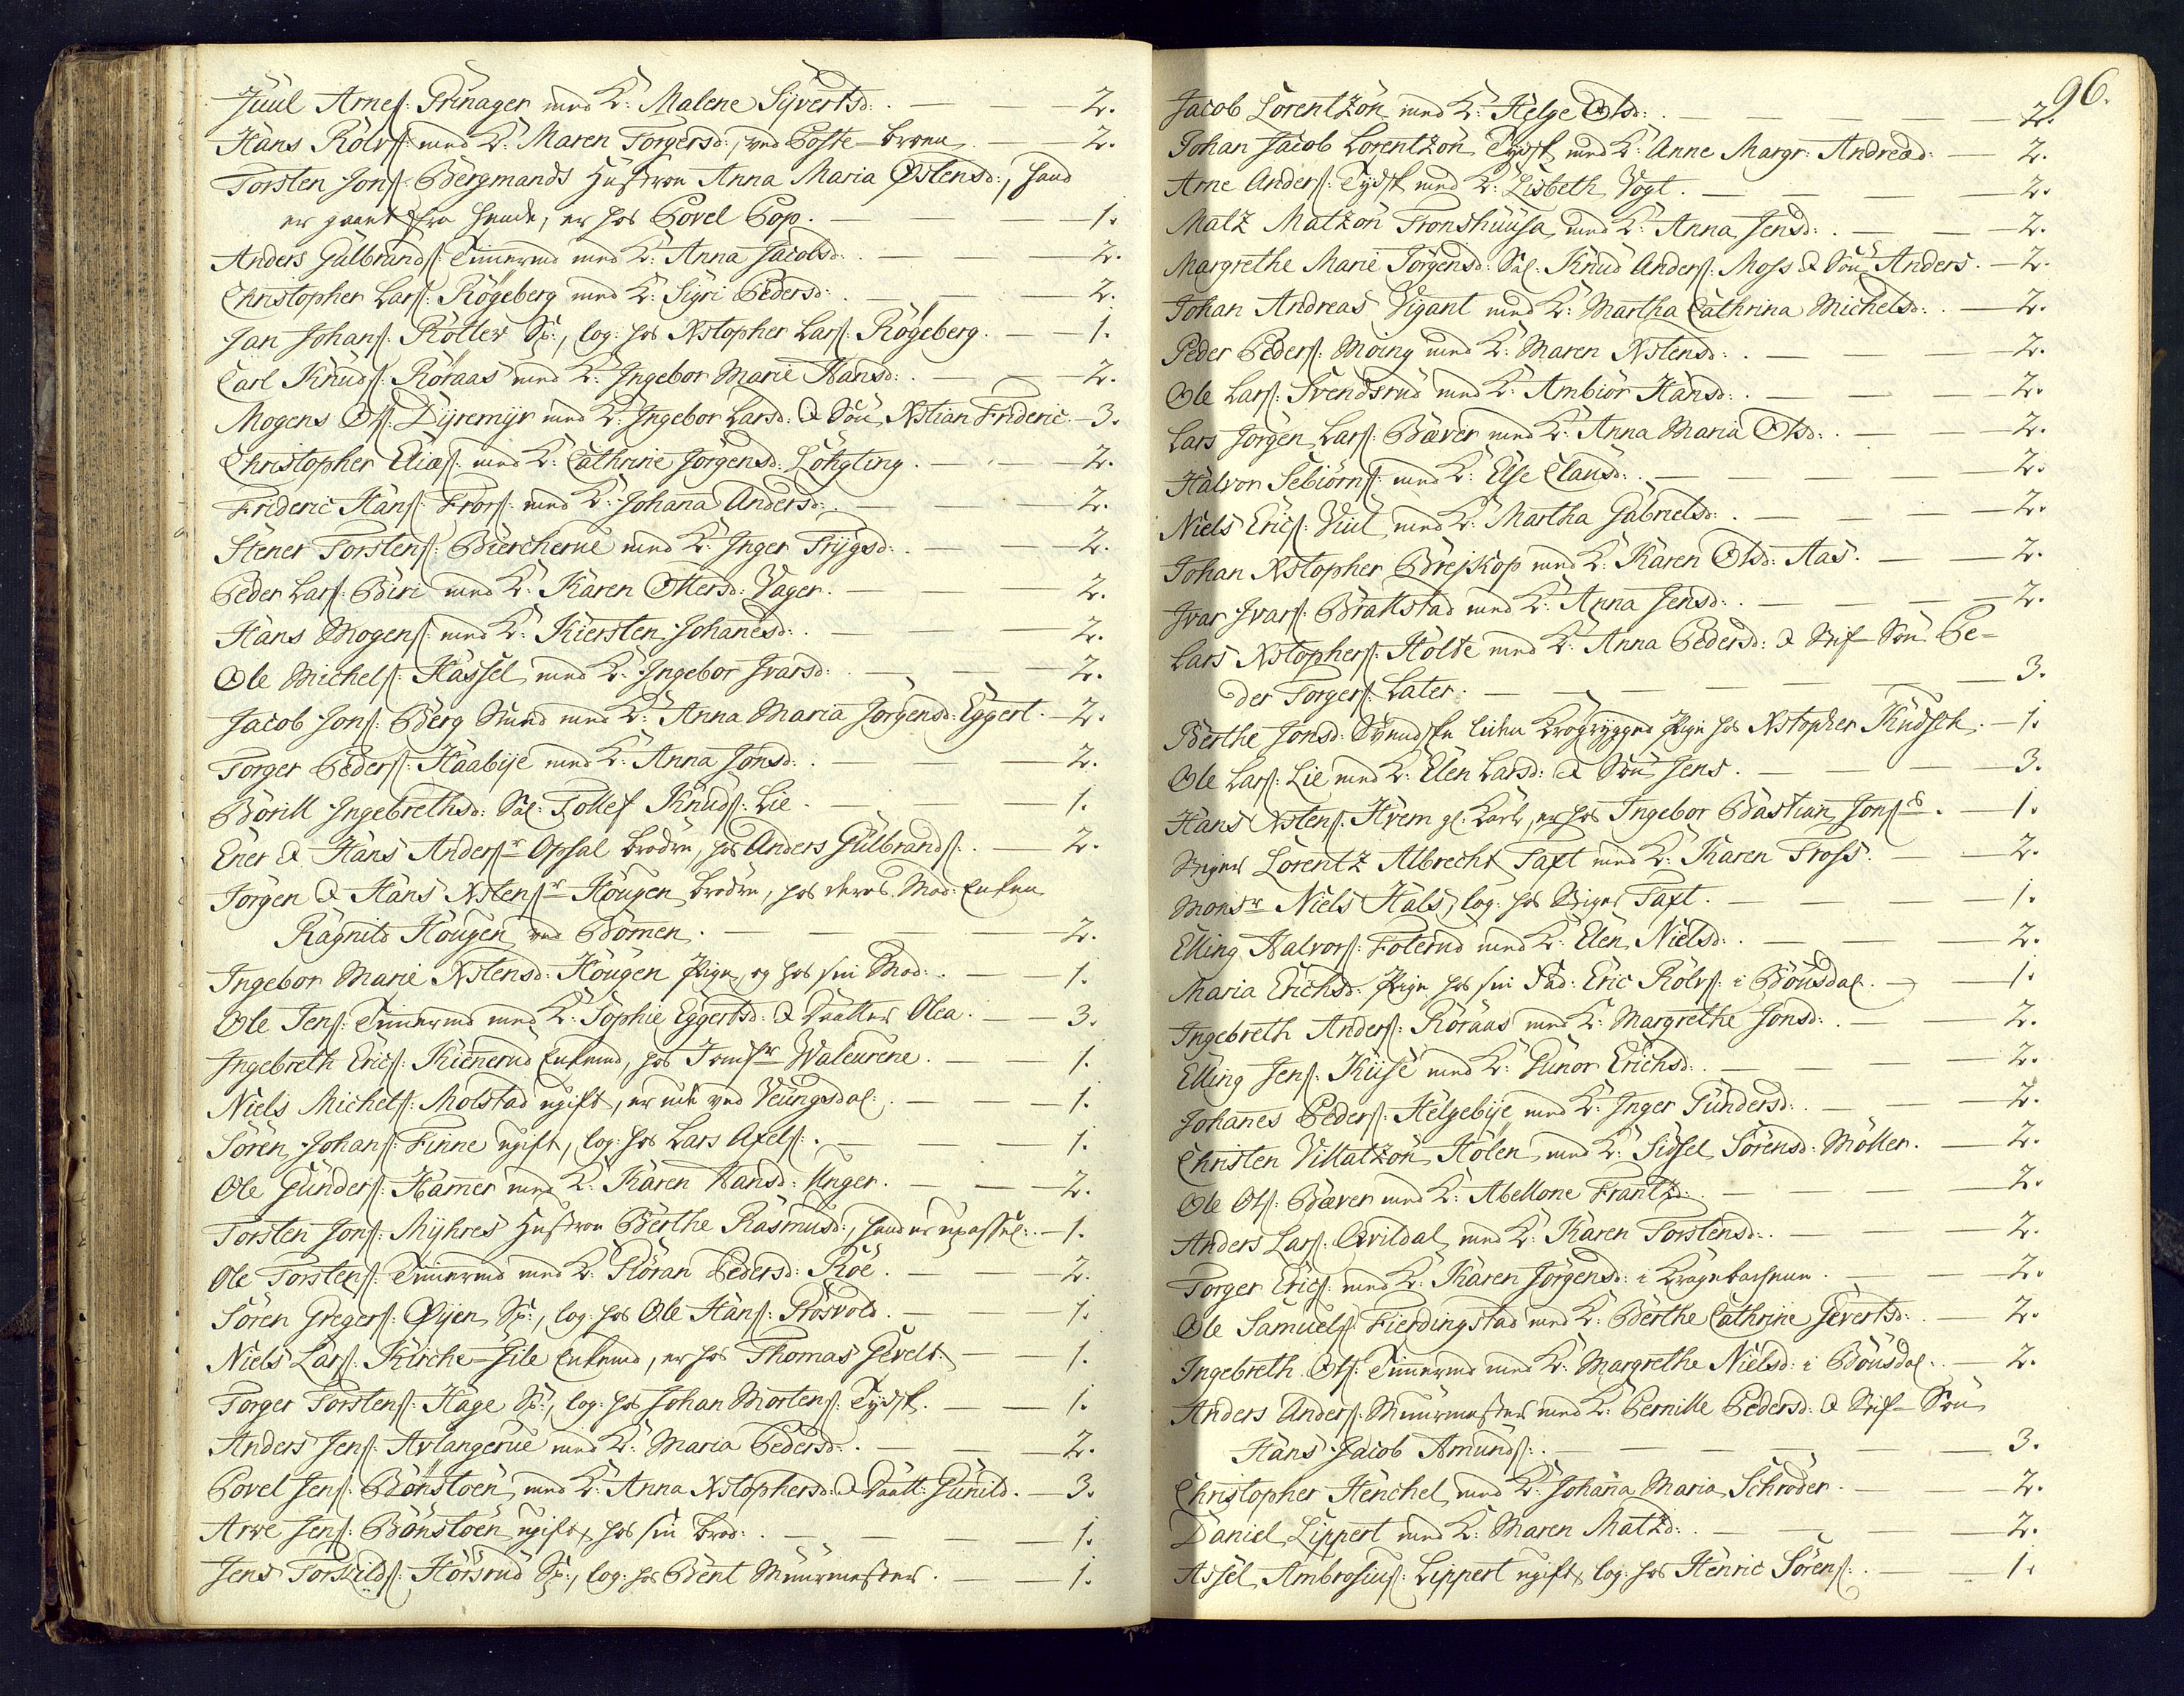 Juul Arnes: Prinager med K: Malene Sÿvertsd: . — — 2.
Hans Rolvs: med K: Maren Torgersd:, ved Poste-broen — — 2.
Torsten Jons: Bergmands Hustroe Anna Maria Østensd:, hand
er gaaet fra hende, er hos Povel Pop. — — 1.
Anders Gulbrands: Timermd med K: Anna Jacobsd: . — — 2.
Christopher Lars: Rögeberg med K: Sigri Pedersd: . — — 2.
Jan Johans: Rotler Sv:, log: hos Xstopher Lars: Rögeberg. — 1.
Carl Knuds: Röraas med K: Ingebor Marie Hansd: . — — 2.
Mogens Ols: Dÿremÿr med K: Ingebor Larsd: & Sön Xstian Frideric. — 3.
Christopher Elias: med K: Cathrine Jörgensd: Löhgling. — — 2.
Frideric Hans: Frors: med K: Johana Andersd: . — — 2.
Stener Torstens: Biercherue med K: Inger Trÿgsd: . — — 2.
Peder Lars: Biri med K: Karen Ottersd: Vager. — — 2.
Hans Mogens: med K: Kiersten Johanesd: . — — 2.
Ole Michels: Hassel med K: Ingebor Ivarsd: . — — 2.
Jacob Jons: Berg Smed med K: Anna Maria Jörgensd: Eggert. — 2.
Torger Peders: Haabÿe med K: Anna Jonsd: . — — 2.
Borill Ingebrethsd: Sal: Tollef Knuds: Lie. — — 1.
Ener & Hans Anders:r Opsal brödre, hos Anders Gulbrands: . — 2.
Jörgen & Hans Xstens:r Hougen brödre, hos deres Mod: Enken
Ragnild Hougen ved Bommen. — — 2.
Ingebor Marie Xstensd: Hougen Pige, og hos sin Mod: . — 1.
Ole Jens: Timermd med K: Sophie Eggertsd: & Daatter Olea. — 3.
Ingebreth Erics: Kienerud Enkemd, hos Waleurene. — 1.
Niels Michels: Molstad ugift, er ude ved Veungsdal: . — 1.
Sören Johans: Finne ugift, log: hos Lars Axels: . — 1.
Ole Gunders: Hamer med K: Karen Hansd: Unger. — — 2.
Torsten Jons: Mÿhres Hustroe Berthe Rasmusd:, hand er upassel: . — 1.
Ole Torstens: Timermd med K: Göran Pedersd: Röe. — — 2.
Sören Gregers: Øÿen Sv:, log: hos Ole Hans: Prosvold. — 1.
Niels Lars: Kirche-Gile Enkemd, er hos Thomas Gevelt. — 1.
Torger Torstens: Hage Sv:, log: hos Johan Mortens: Tÿdsk. — 1.
Anders Jens: Avlangerue med K: Maria Pedersd: . — — 2.
Povel Jens: Bönstoen med K: Anna Xstophersd: & Daatt: Gunild. — 3.
Arve Jens: Bönstoen ugift, hos sin Brod: . — — 1.
Jens Torkilds: Horsrud Sv:, log: hos Bent Muurmester. — 1.
96.
Jacob Lorentzön med K: Helge Olsd: . — — 2.
Johan Jacob Lorentzön Tÿdsk med K: Anne Margr: Andread: — 2.
Arne Anders: Tÿdsk med K: Lisbeth Vogt. — — 2.
Matz Matzön Tronshuusa med K: Anna Jensd: . — — 2.
Margrethe Marie Jörgensd: Sal: Knud Anders: Moss & Sön Anders. — 2.
Johan Andreas Vigant med K: Martha Cathrina Michelsd: . — 2.
Peder Peders: Moing med K: Maren Xstensd: . — — 2.
Ole Lars: Svendsrud med K: Ambiör Hansd: . — — 2.
Lars Jörgen Lars: Bæver med K: Anna Maria Olsd: . — — 2.
Halvor Sebiörns: med K: Else Clausd: . — — 2.
Niels Erics: Viul med K: Martha Gabrielsd: . — — 2.
Johan Xstopher Brejskop med K: Karen Olsd: Aas. — — 2.
Ivar Ivars: Brattstad med K: Anna Jensd: . — — 2.
Lars Xstophers: Holte med K: Anna Pedersd: & Stif-Sön Pe-
der Torgers: Later: — — 3.
Berthe Jonsd: Svendske liden krogrÿgged Pige hos Xstopher Knusch. — 1.
Ole Lars: Lie med K: Elen Larsd: & Sön Jens. — — 3.
Hans Xstens: Hvem gl: Karl, er hos Ingebor Bastian Jons:s . — 1.
Stiger Lorentz Albrecht Taxt med K: Karen Tross. — — 2.
Monsr Niels Hals, log: hos Stiger Taxt. — — 1.
Elling Halvors: Foterud med K: Elen Nielsd: . — — 2.
Maria Erichsd: Pige hos sin Fad: Eric Rolvs: i Bönsdal. — 1.
Ingebreth Anders: Röraas med K: Margrethe Jonsd: . — — 2.
Elling Jens: Kuse med K: Gunor Erichsd: . — — 2.
Johanes Peders: Helgebÿe med K: Inger Gundersd: . — — 2.
Christen Villatzön Holen med K: Sidsel Sörensd: Möller. — 2.
Ole Ols: Bæver med K: Abellone Frantzd: . — — 2.
Anders Lars: Qvildal med K: Karen Torstensd: . — — 2.
Torger Erics: med K: Karen Jörgensd: i Kragebachene. — — 2.
Ole Samuels: Fierdingstad med K: Berthe Cathrine Severtsd: . — 2.
Ingebreth Ols: Timermd med K: Margrethe Nielsd: i Bönsdal. — 2.
Anders Anders: Muurmester med K: Pernille Pedersd: & Stif-Sön
Hans Jacob Amunds: . — — 3.
Christopher Henchel med K: Johana Maria Schröder. — — 2.
Daniel Lippert med K: Maren Matzd: . — — 2.
Assel Ambrosius: Lippert ugift, log: hos Henric Sörens: . — 1.